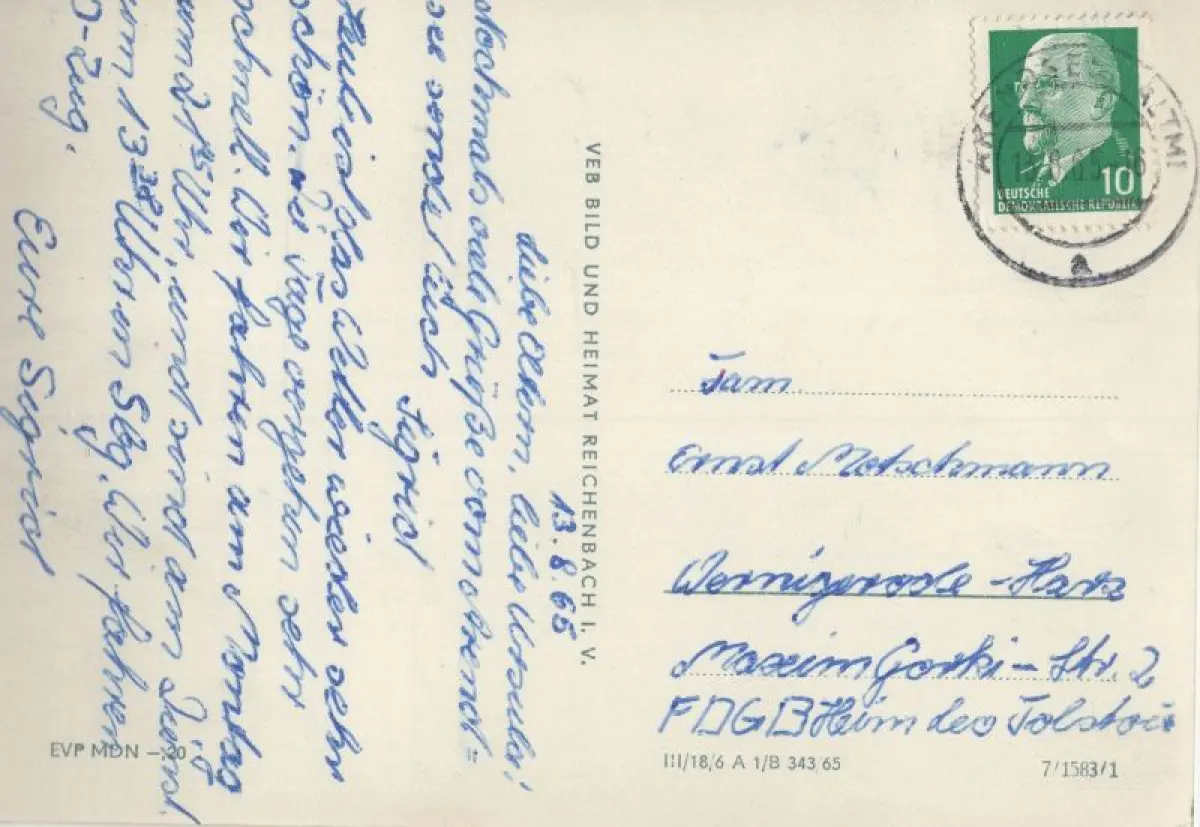 13.8.65
Liebe Eltern, liebe Ursula!
Nochmals viele Grüße vom Arend=
see sendet Euch
Sigrid
Heute ist das Wetter wieder sehr
schön. Die Tage vergehen sehr
schnell. Wir fahren am Montag
um Uhr, und sind am Dienst.
um 13 38 Uhr in Sbg. Wir fahren
D-Zug.
Eure Sigrid
EVP MDN – 20
VEB BILD UND HEIMAT REICHENBACH I. V.
10
DEUTSCHE
DEMOKRATISCHE REPUBLIK
ARENDSEE (ALTM)
a
Fam.
Ernst Metschmann
Wernigerode - Harz
Maxim Gorki - Str. 2
FDGB Heim Leo Tolstoi
III/18/6 A 1/B 343 65
7/1583/1